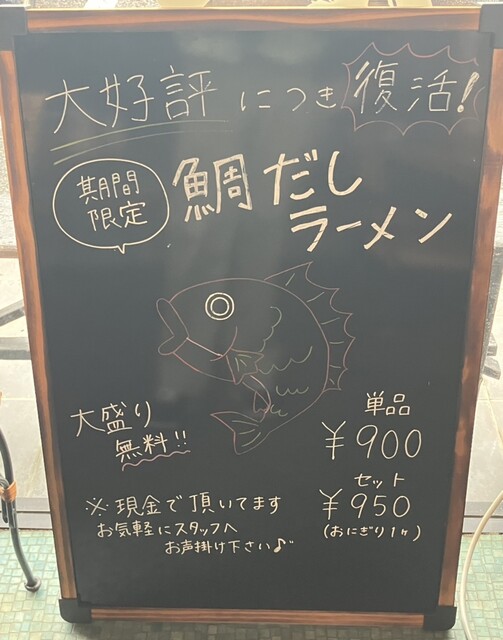 大好評につき復活!
期間
限定
鯛だし
ラーメン
大盛り
無料!!
単品
¥900
セット
¥950
(おにぎり1ヶ)
※現金で頂いてます
お気軽にスタッフへ
お声掛け下さい♪